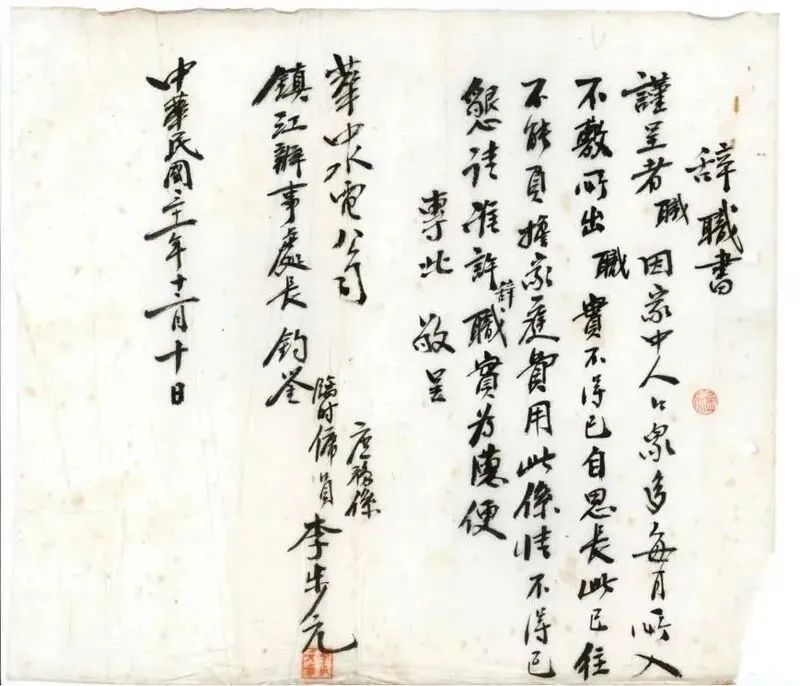 辞職書
謹呈者職因家中人口衆多每月所入
不敷所出職實不得已自思長此已往
不能負擔家庭費用此係情不得已
懇請准許辞職實为德便
專此 敬呈
華中水電公司
鎮江辦事處長 鈞鉴
庶務係
臨时傭員 李步元
中華民國三十一年十二月十日